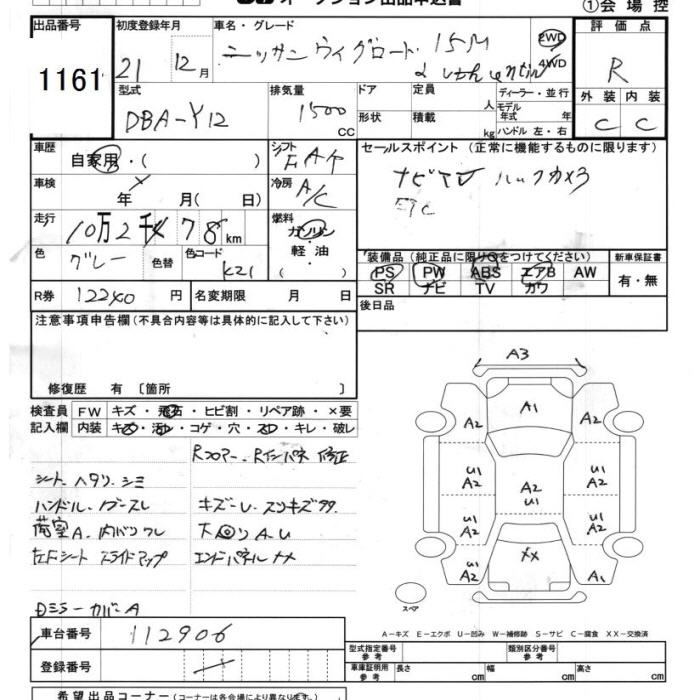 オークション出品申込書
①会場控
出品番号 初度登録年月 車名・グレード 評価点
1161 21 12月 ニッサン ウィングロード 15M 2WD 4WD R
型式 排気量 ドア 定員 人 ディーラー・並行 外装 内装
DBA-Y12 1500 CC 形状 積載 kg モデル年式 年 ハンドル 左・右 C C
車歴 自家用・( ) シフト FAT セールスポイント (正常に機能するものに限ります)
車検 年 月(日) 冷房 A/C ナビTV バックカメラ
ETC
走行 10万2千 78 km 燃料 ガソリン 軽油 ( )
色 グレー 色替 色コード K21 装備品(純正品に限り○をつけてください) 新車保証書
PS PW ABS エアB AW 有・無
SR ナビ TV カワ
R券 12240円 名変期限 月 日 後日品
注意事項申告欄(不具合内容等は具体的に記入して下さい)
修復歴 有〔箇所 〕
検査員 FW キズ・飛石・ヒビ割・リペア跡・×要
記入欄 内装 キズ・汚レ・コゲ・穴・スレ・キレ・破レ
Rフロアー、Rインパネ 修正
シート ヘタリ、シミ
ハンドル、ノブスレ キズーU、スリキズ多
荷室A、内バリワレ 大◎リA、U
左Fシート スライドアップ エンドパネルXX
Dミラーカバー A
A3
A1
A2 A2
U1 A2 A2 U1 U1 A2
U1 A2 U1 A2
XX
U1 A2 A1
スペア
A-キズ E-エクボ U-凹み W-補修跡 S-サビ C-腐食 XX-交換済
車台番号 112906 型式指定番号 参考 類別区分番号 参考
登録番号 車庫証明用 参考 長さ cm 幅 cm 高さ cm
希望出品コーナー(コーナーは各会場により異なります)